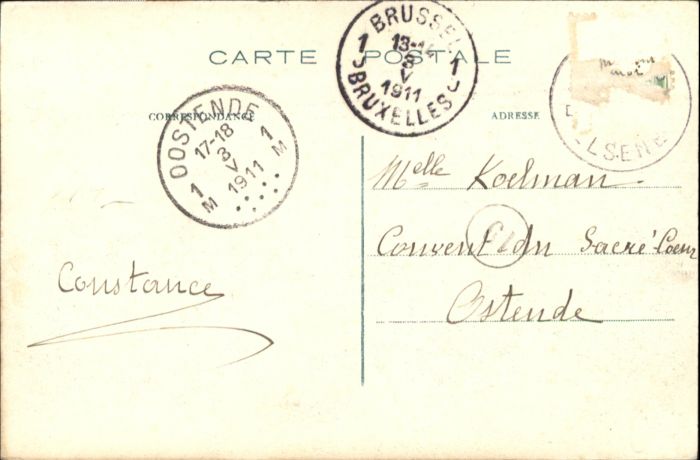 CARTE POSTALE
BRUSSEL
1 13-14 1
8
V
1911
BRUXELLES
CORRESPONDANCE
ADRESSE
OOSTENDE
17-18
8
V
1911
1 M 1 M
LSENE
Melle Koelman.
Convent du Sacré-Coeur
Ostende
Constance